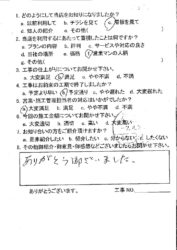 1. どのようにして当店をお知りになりましたか?
a. 以前利用して b. チラシを見て c. 看板を見て
d. 知人の紹介 e. その他(
2. 当店を利用するにあたって重視したことは何ですか?
a. プランの内容 b. 評判 c. サービスや対応の良さ
d. 日程の速さ e. 価格 f. 営業マンの人柄
g. その他(
3. 工事の仕上がりについてお聞かせ下さい。
a. 大変満足 b. 満足 c. やや不満 d. 不満
4. 工事はお約束の工期で終了しましたか?
a. 予定より早い b. 予定通り c. やや遅れた d. 大変遅れた
5. 営業・施工管理担当者の対応はいかがでしたか?
a. 大変満足 b. 満足 c. やや不満 d. 不満
6. 今回の施工金額についてお聞かせ下さい。
a. 大変適切 b. 適切 c. 高い d. 大変高い
7. お知り合いの方をご紹介頂けますか?
a. 是非紹介したい b. 紹介したい c. 分からない d. したくない
8. その他御紹介・御意見・御感想などございましたらお聞かせ下さい。
ありがとう御ざいました。
ありがとうございます。 工事NO.